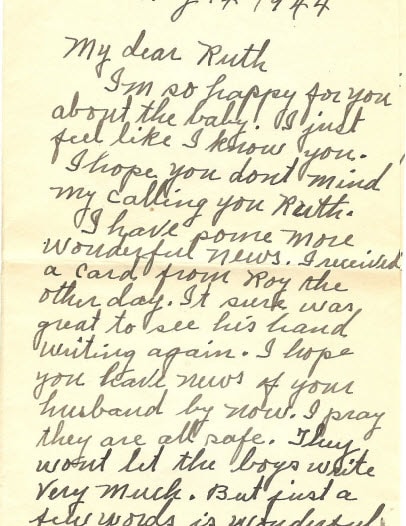 14 1944
My dear Ruth
I'm so happy for you
about the baby. I just
feel like I know you.
I hope you dont mind
my calling you Ruth.
I have some more
wonderful news. I received
a card from Roy the
other day. It sure was
great to see his hand
writing again. I hope
you have news of your
husband by now. I pray
they are all safe. They
wont let the boys write
very much. But just a
few words is wonderful